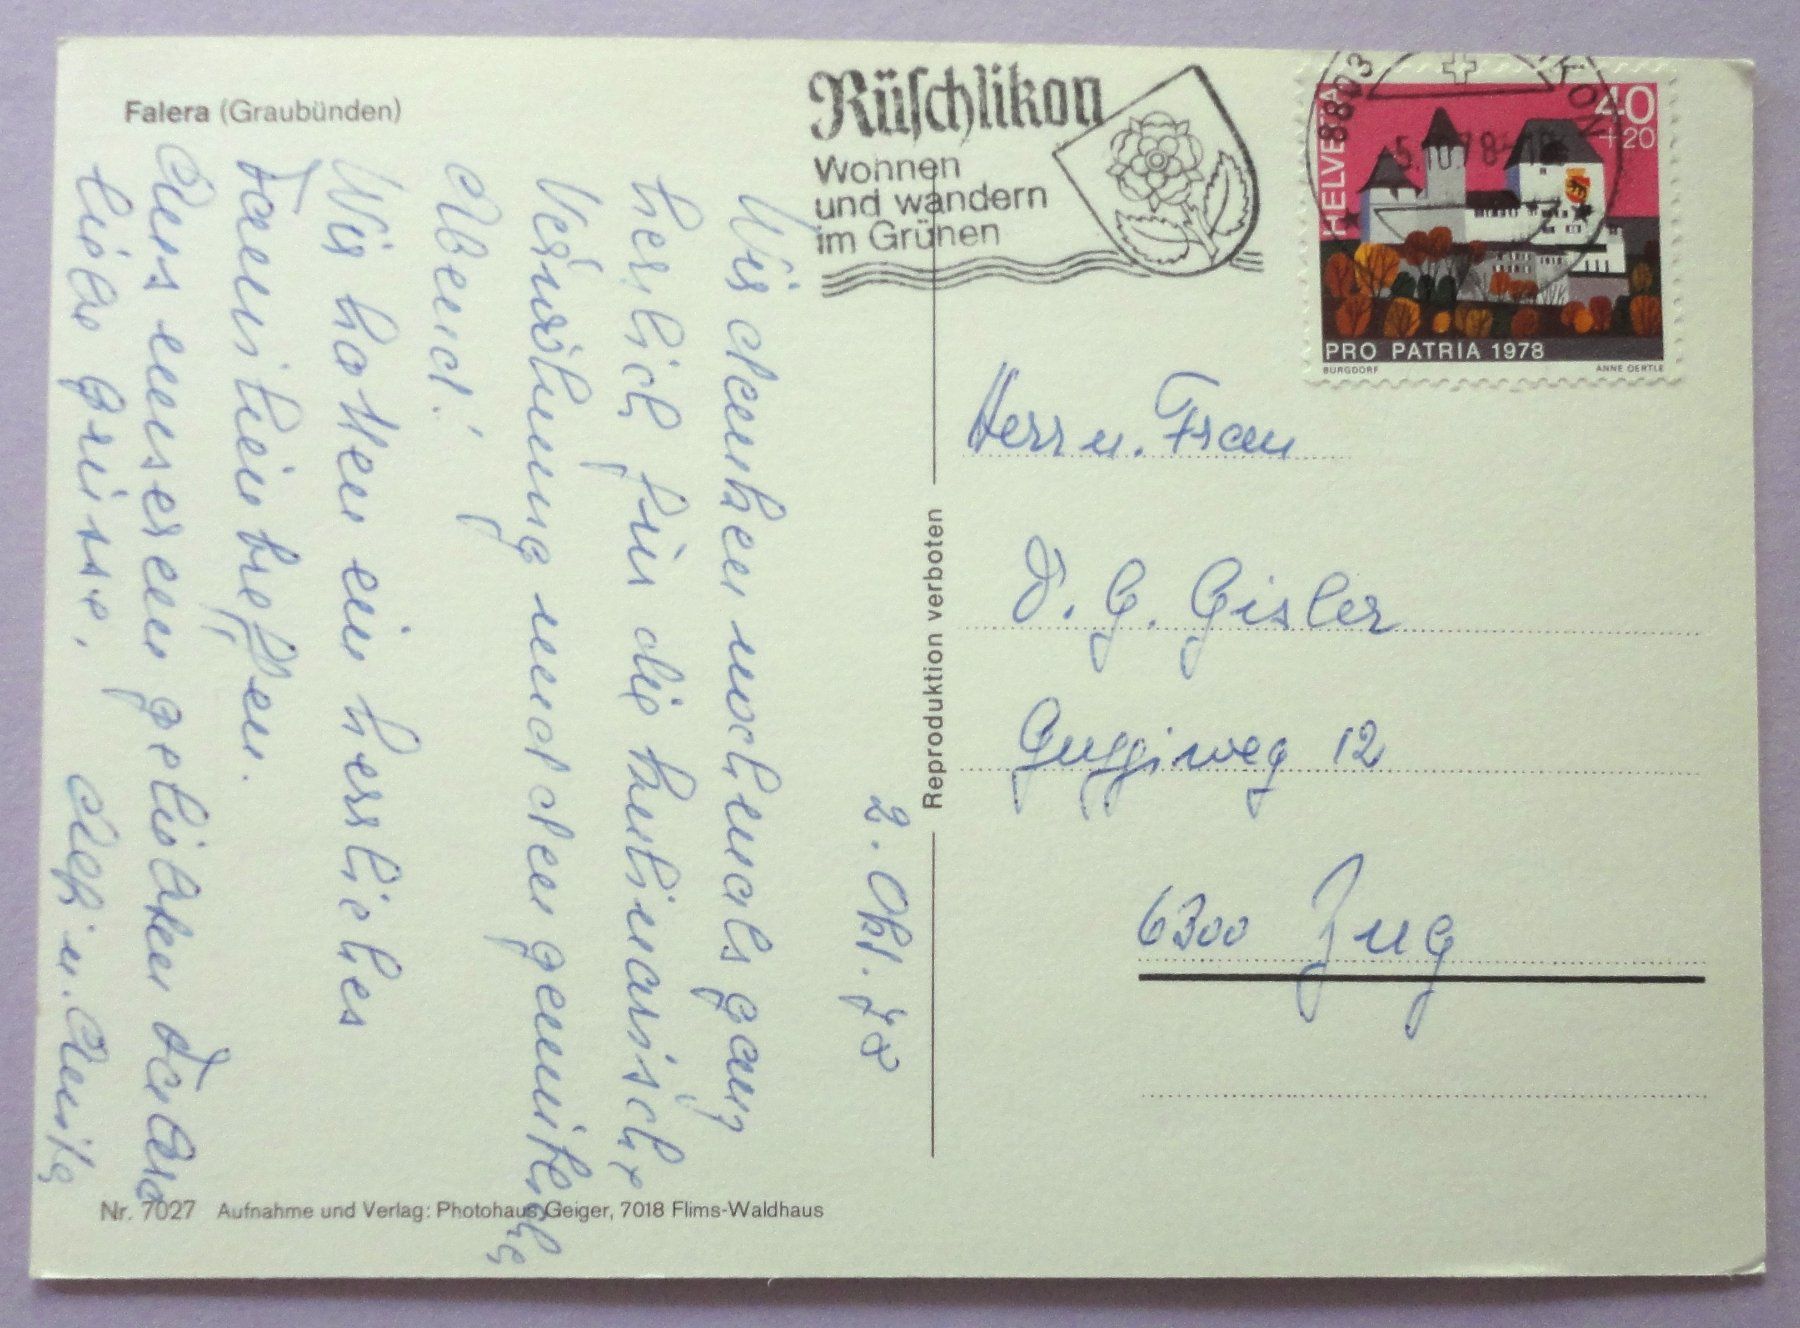 Falera (Graubünden)
Rüschlikon
Wohnen
und wandern
im Grünen
8803
5.10.78
HELVETIA
40
+20
PRO PATRIA 1978
BURGDORF
ANNE OERTLE
2. Okt. 78
Wir danken nochmals ganz
herlich für die kulinarische
Verwöhnung und den gemütliche
Abend!
Wir hatten ein herrliches
in
Aus unserem geliebten
liebe Grüsse.
Herr u. Frau
G. Gisler
Guggiweg 12
6300 Zug
Reproduktion verboten
Nr. 7027 Aufnahme und Verlag: Photohaus Geiger, 7018 Flims-Waldhaus